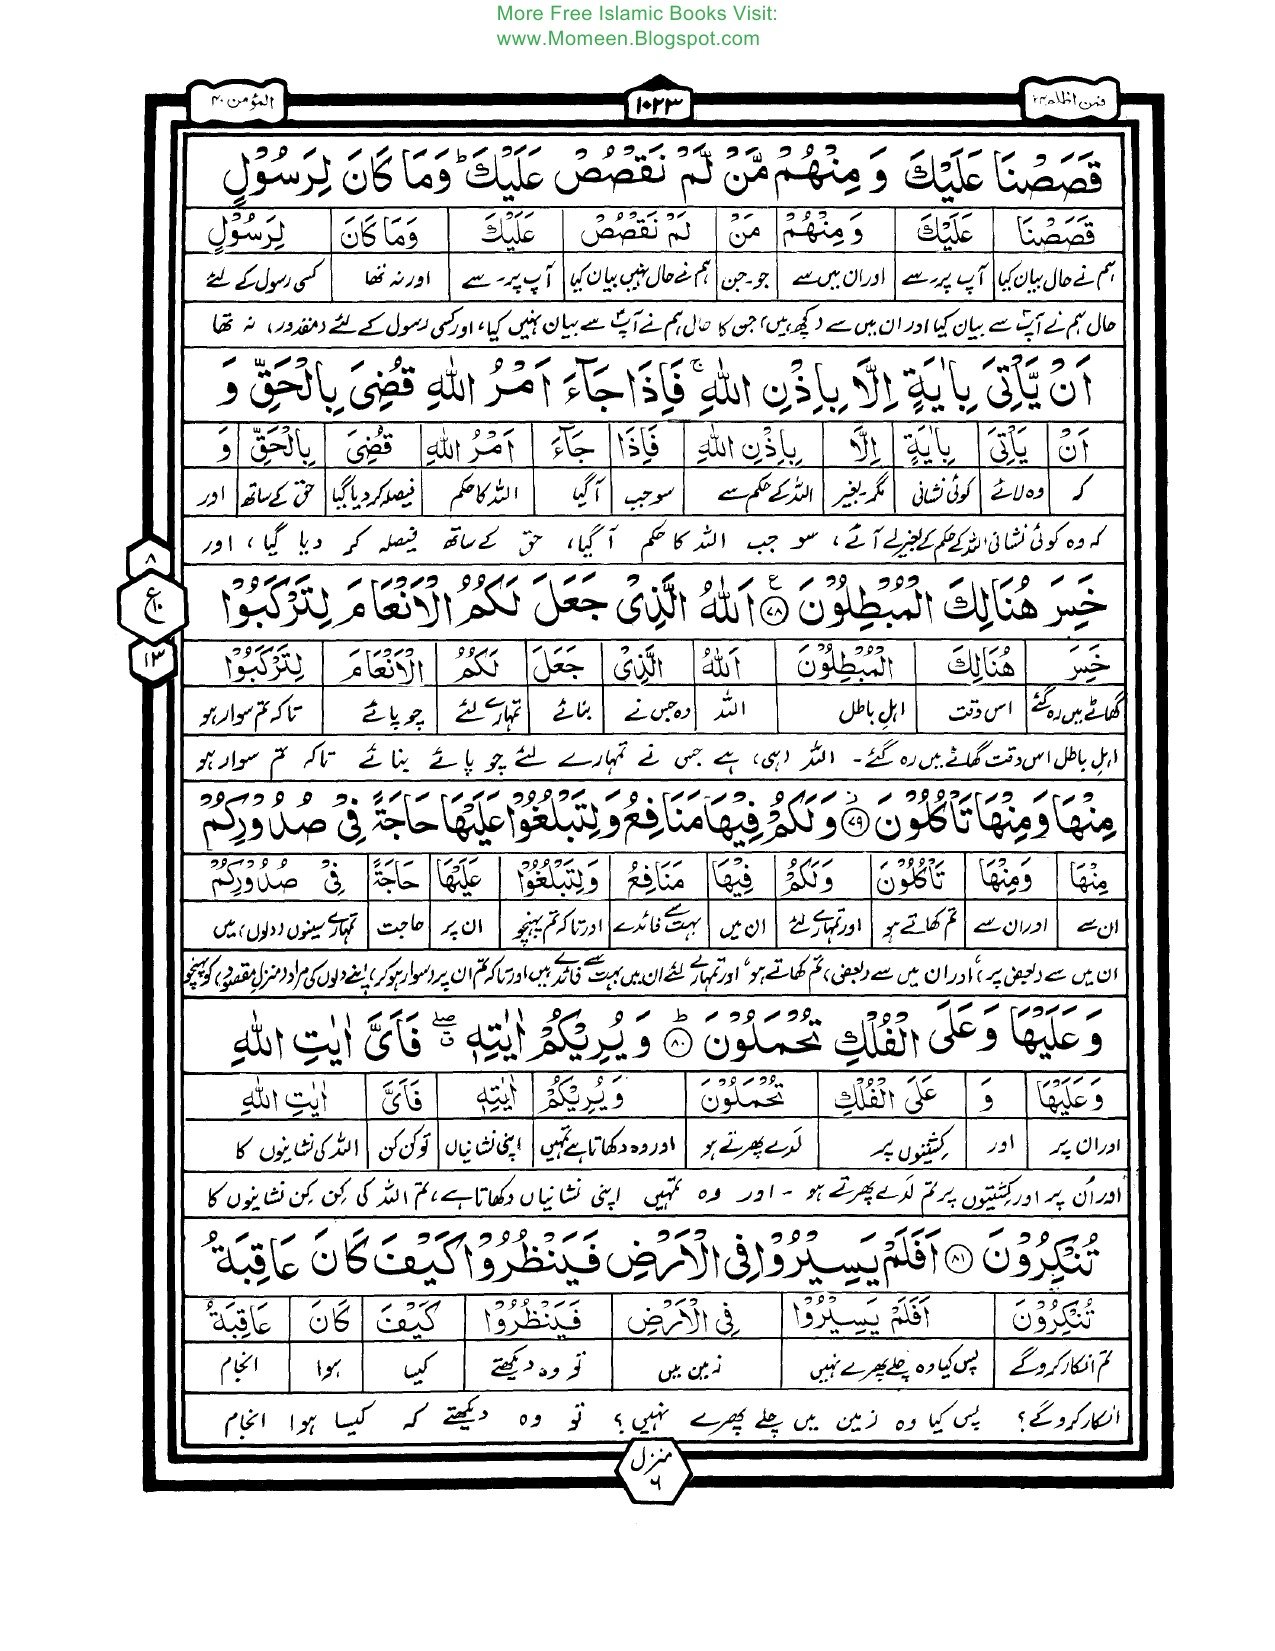 More Free Islamic Books Visit:
www.Momeen.Blogspot.com
فمن اظلم ۲۴
۱۰۲۳
المؤمن ۴۰
قَصَصْنَا عَلَيْكَ وَمِنْهُمْ مَّنْ لَّمْ نَقْصُصْ عَلَيْكَ ؕ وَمَا كَانَ لِرَسُوْلٍ
قَصَصْنَا عَلَيْكَ وَمِنْهُمْ مَنْ لَمْ نَقْصُصْ عَلَيْكَ وَمَا كَانَ لِرَسُوْلٍ
ہم نے حال بیان کیا آپ پر۔سے اور ان میں سے جو۔جن ہم نے حال نہیں بیان کیا آپ پر۔سے اور نہ تھا کسی رسول کے لئے
حال ہم نے آپؐ سے بیان کیا اور ان میں سے (کچھ ہیں) جن کا حال ہم نے آپؐ سے بیان نہیں کیا، اور کسی رسول کے لئے (مقدور) نہ تھا
اَنْ يَّاْتِىَ بِاٰيَةٍ اِلَّا بِاِذْنِ اللّٰهِ ۚ فَاِذَا جَآءَ اَمْرُ اللّٰهِ قُضِىَ بِالْحَقِّ وَ
اَنْ يَاْتِىَ بِاٰيَةٍ اِلَّا بِاِذْنِ اللّٰهِ فَاِذَا جَآءَ اَمْرُ اللّٰهِ قُضِىَ بِالْحَقِّ وَ
کہ وہ لائے کوئی نشانی مگر۔بغیر اللہ کے حکم سے سو جب آ گیا اللہ کا حکم فیصلہ کر دیا گیا حق کے ساتھ اور
کہ وہ کوئی نشانی اللہ کے حکم کے بغیر لے آئے، سو جب اللہ کا حکم آ گیا، حق کے ساتھ فیصلہ کر دیا گیا، اور
۸
ع ۱۰
۱۳
خَسِرَ هُنَالِكَ الْمُبْطِلُوْنَ ﴿۷۸﴾ ع اَللّٰهُ الَّذِىْ جَعَلَ لَكُمُ الْاَنْعَامَ لِتَرْكَبُوْا
خَسِرَ هُنَالِكَ الْمُبْطِلُوْنَ اَللّٰهُ الَّذِىْ جَعَلَ لَكُمُ الْاَنْعَامَ لِتَرْكَبُوْا
گھاٹے میں رہ گئے اس وقت اہل باطل اللہ وہ جس نے بنائے تمہارے لئے چوپائے تاکہ تم سوار ہو
اہلِ باطل اس وقت گھاٹے میں رہ گئے۔ اللہ (ہی) ہے جس نے تمہارے لئے چوپائے بنائے تاکہ تم سوار ہو
مِنْهَا وَمِنْهَا تَاْكُلُوْنَ ﴿۷۹﴾ ز وَلَكُمْ فِيْهَا مَنَافِعُ وَلِتَبْلُغُوْا عَلَيْهَا حَاجَةً فِىْ صُدُوْرِكُمْ
مِنْهَا وَمِنْهَا تَاْكُلُوْنَ وَلَكُمْ فِيْهَا مَنَافِعُ وَلِتَبْلُغُوْا عَلَيْهَا حَاجَةً فِىْ صُدُوْرِكُمْ
ان سے اور ان سے تم کھاتے ہو اور تمہارے لئے ان میں بہت سے فائدے اور تاکہ تم پہنچو ان پر حاجت تمہارے سینوں (دلوں) میں
ان میں سے (بعض پر) اور ان میں سے (بعض) تم کھاتے ہو، اور تمہارے لئے ان میں بہت سے فائدے ہیں اور تاکہ تم ان پر (سوار ہو کر) اپنے دلوں کی مراد (منزل مقصود) کو پہنچو
وَعَلَيْهَا وَعَلَى الْفُلْكِ تُحْمَلُوْنَ ؕ ﴿۸۰﴾ وَيُرِيْكُمْ اٰيٰتِهٖ ۖ ق فَاَىَّ اٰيٰتِ اللّٰهِ
وَعَلَيْهَا وَ عَلَى الْفُلْكِ تُحْمَلُوْنَ وَيُرِيْكُمْ اٰيٰتِهٖ فَاَىَّ اٰيٰتِ اللّٰهِ
اور ان پر اور کشتیوں پر لدے پھرتے ہو اور وہ دکھاتا ہے تمہیں اپنی نشانیاں تو کن کن اللہ کی نشانیوں کا
اور ان پر اور کشتیوں پر تم لدے پھرتے ہو ۔ اور وہ تمہیں اپنی نشانیاں دکھاتا ہے، تم اللہ کی کِن کِن نشانیوں کا
تُنْكِرُوْنَ ﴿۸۱﴾ اَفَلَمْ يَسِيْرُوْا فِى الْاَرْضِ فَيَنْظُرُوْا كَيْفَ كَانَ عَاقِبَةُ
تُنْكِرُوْنَ اَفَلَمْ يَسِيْرُوْا فِى الْاَرْضِ فَيَنْظُرُوْا كَيْفَ كَانَ عَاقِبَةُ
تم انکار کرو گے پس کیا وہ چلے پھرے نہیں زمین میں تو وہ دیکھتے کیسا ہوا انجام
انکار کرو گے؟ پس کیا وہ زمین میں چلے پھرے نہیں؟ تو وہ دیکھتے کہ کیسا ہوا انجام
منزل
۶